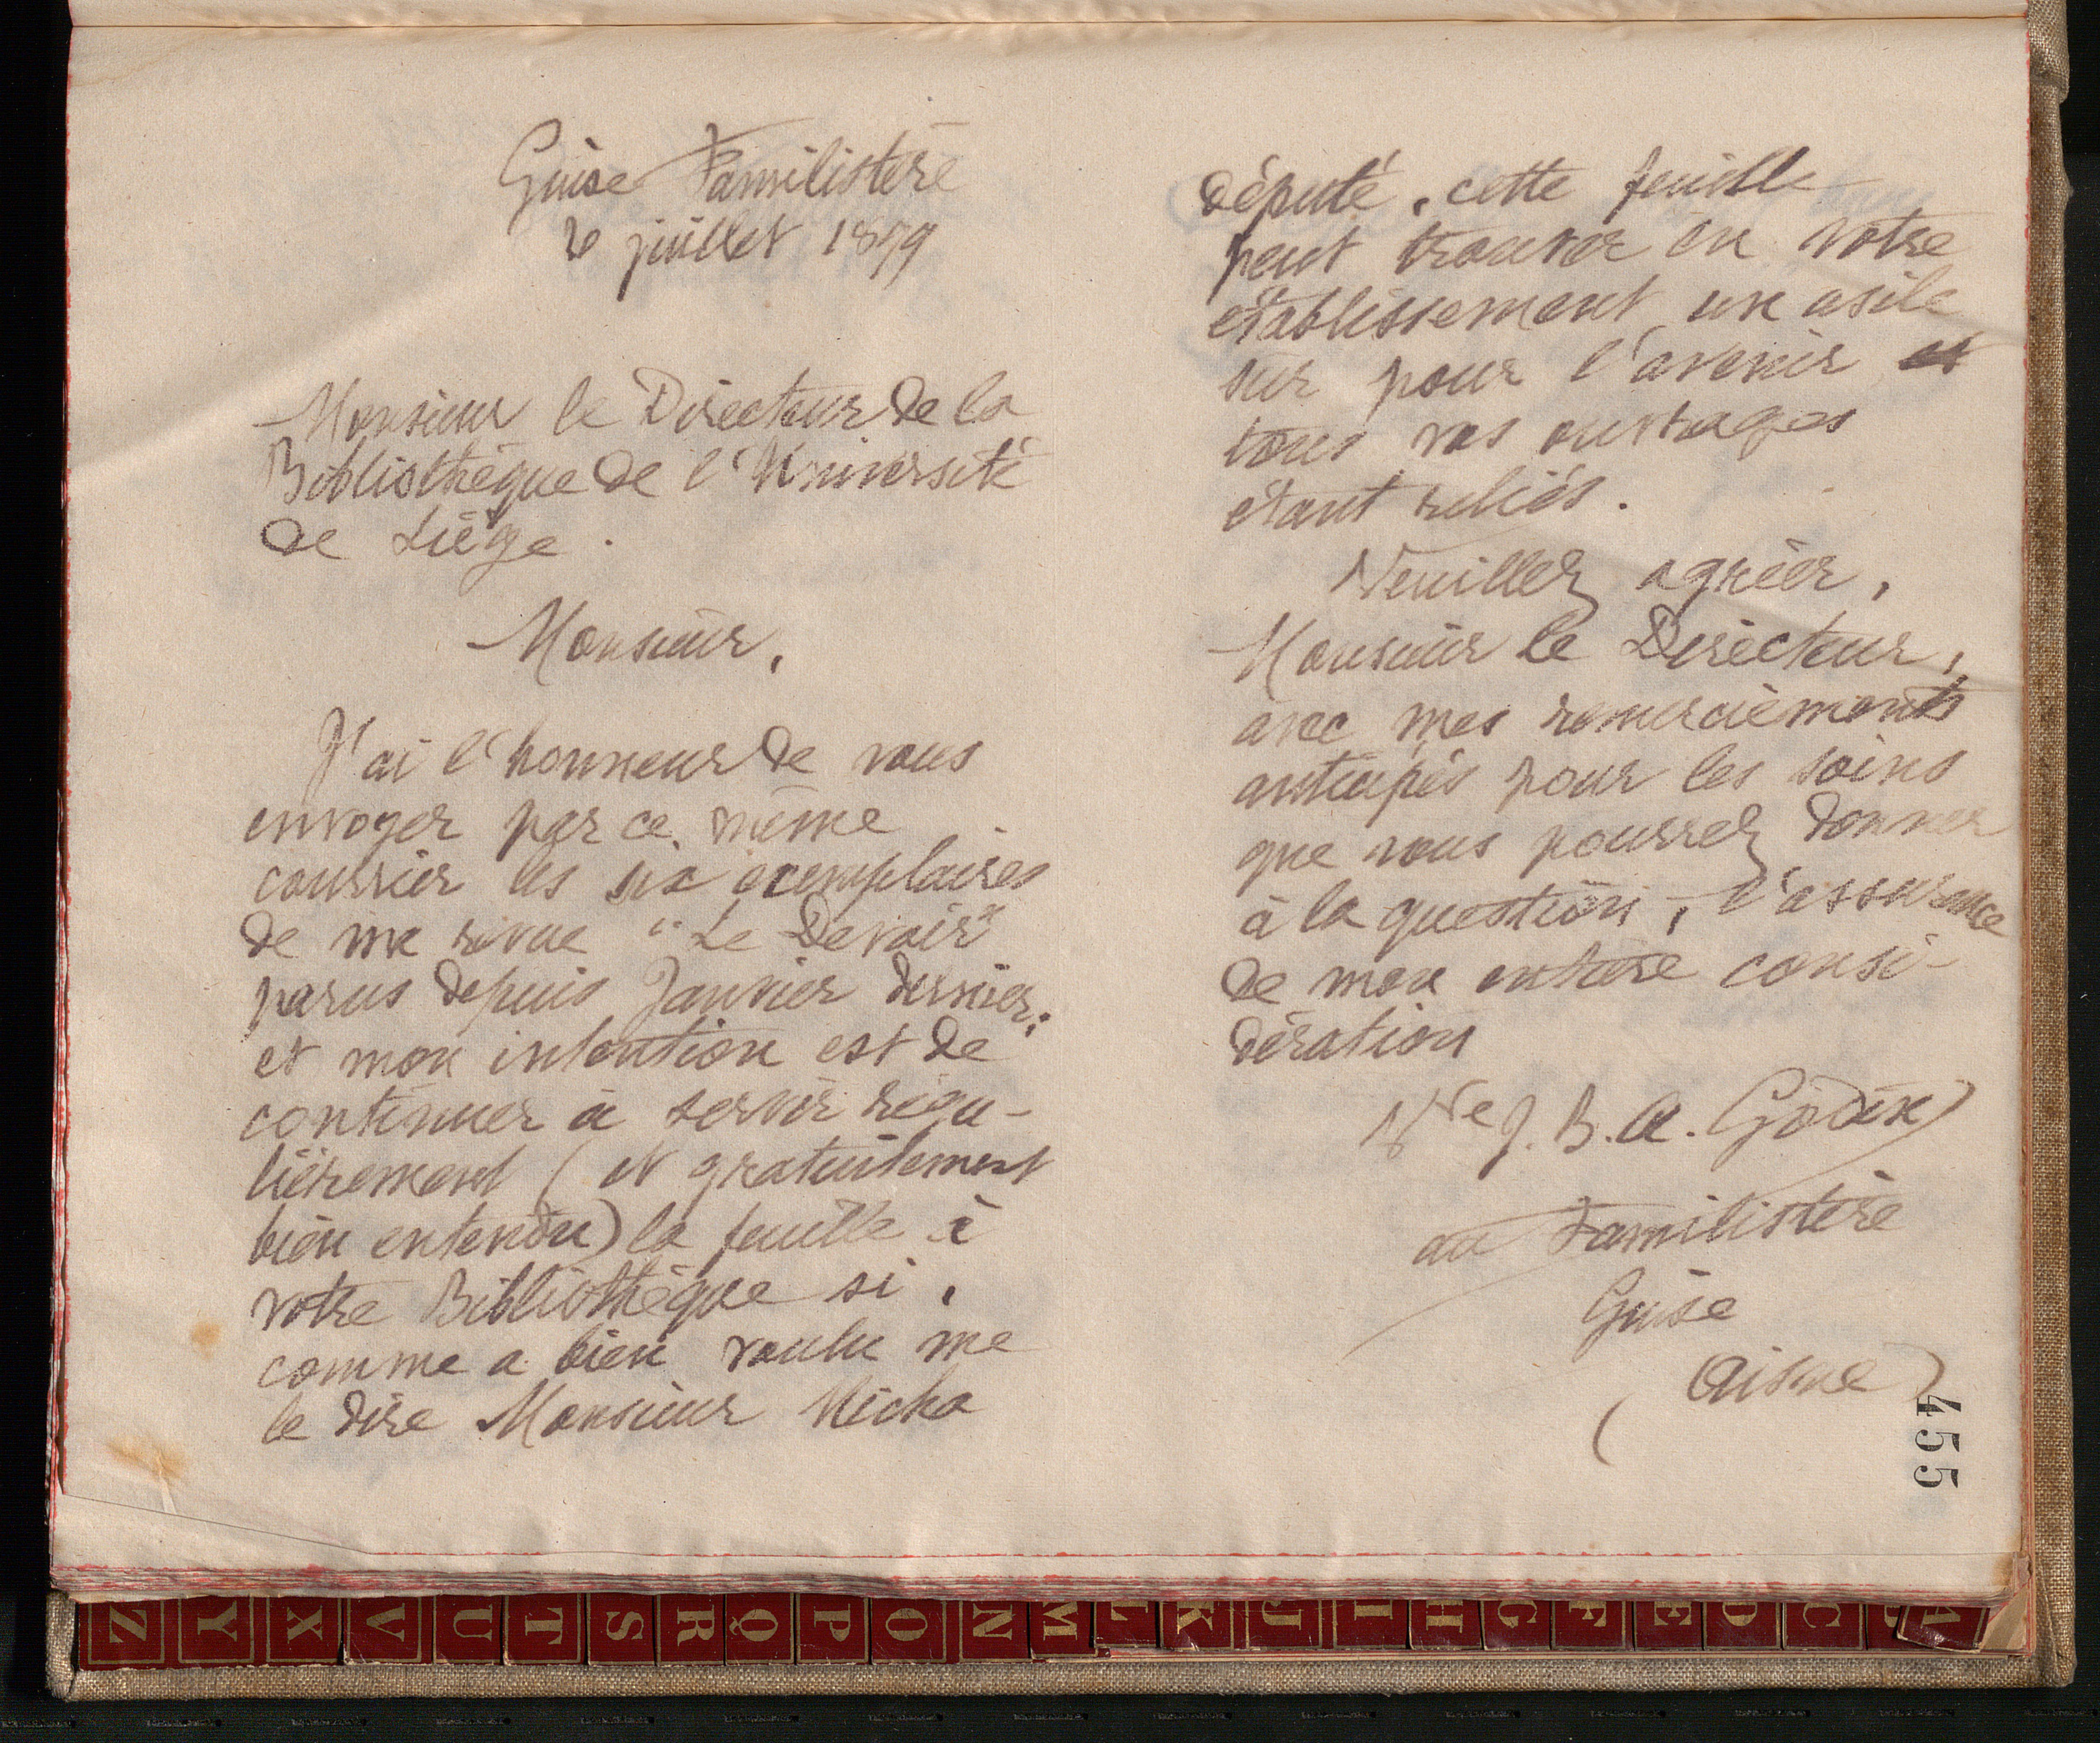 Guise Familistère
juillet 1899
Monsieur le Directeur de la
Bibliothèque de l'Université
de Liége.
Monsieur,
J'ai l'honneur de vous
envoyer par ce même
courrier les six exemplaires
de ma revue "Le Devoir"
parus depuis Janvier dernier;
et mon intention est de
continuer à servir régu-
lièrement (et gratuitement
bien entendu) la feuille à
votre Bibliothèque si,
comme a bien voulu me
le dire Monsieur Micha
député, cette feuille
peut trouver en votre
établissement un asile
sûr pour l'avenir et
tous vos ouvrages
étant reliés.
Veuillez agréer,
Monsieur le Directeur,
avec mes remerciements
anticipés pour les soins
que vous pourrez donner
à la question, l'assurance
de mon entière consi-
dération
Vve J. B. A. Godin
au Familistère
Guise
(Aisne)
455
Z Y X V U T S R Q P O N M L K J I H G F E D C B A